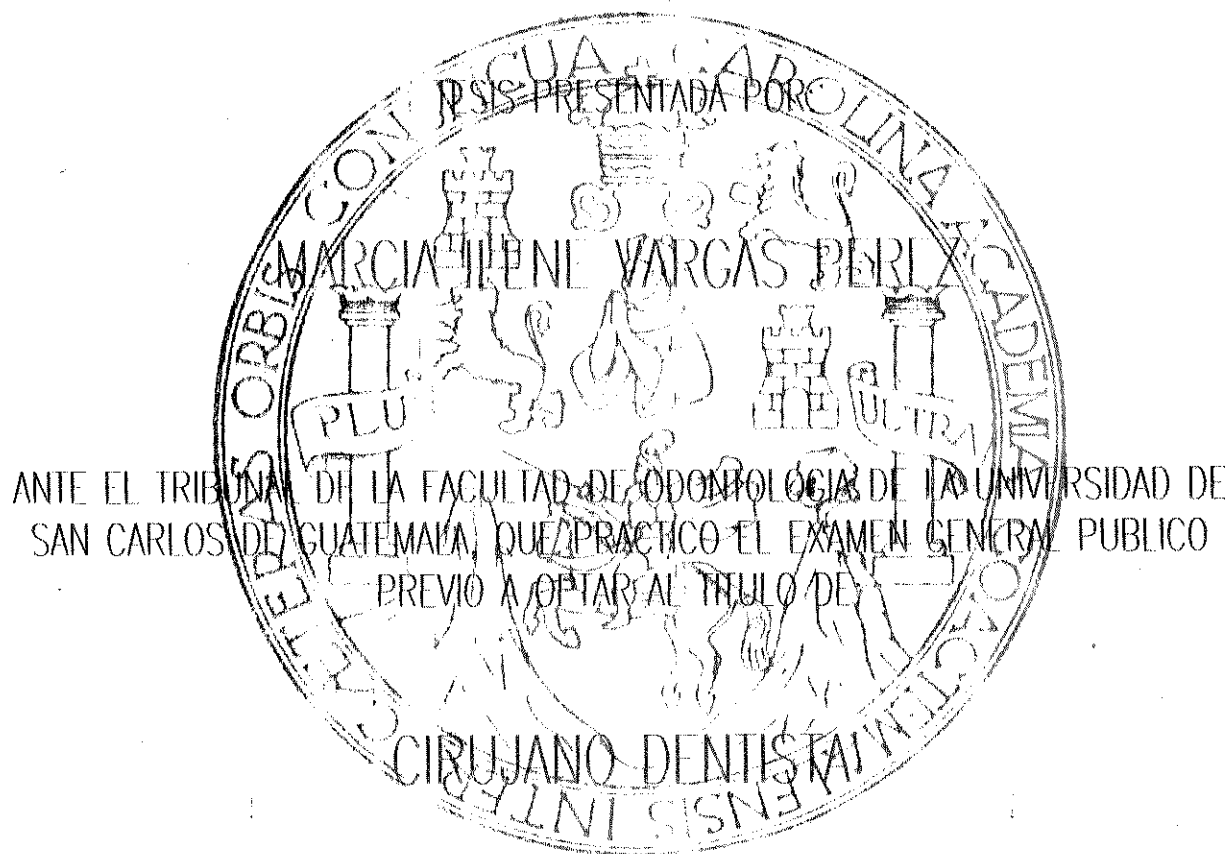 TESIS PRESENTADA POR:
MARCIA ILENE VARGAS PEREZ
ANTE EL TRIBUNAL DE LA FACULTAD DE ODONTOLOGIA DE LA UNIVERSIDAD DE
SAN CARLOS DE GUATEMALA, QUE PRACTICO EL EXAMEN GENERAL PUBLICO
PREVIO A OPTAR AL TITULO DE
CIRUJANO DENTISTA
CAROLINA ACADEMIA COACTEMALENSIS INTER CAETERAS ORBIS CONSPICUA
PLUS
ULTRA